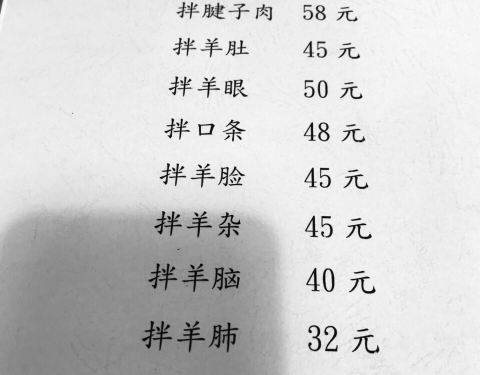 拌腱子肉 58 元
拌羊肚 45 元
拌羊眼 50 元
拌口条 48 元
拌羊脸 45 元
拌羊杂 45 元
拌羊脑 40 元
拌羊肺 32 元